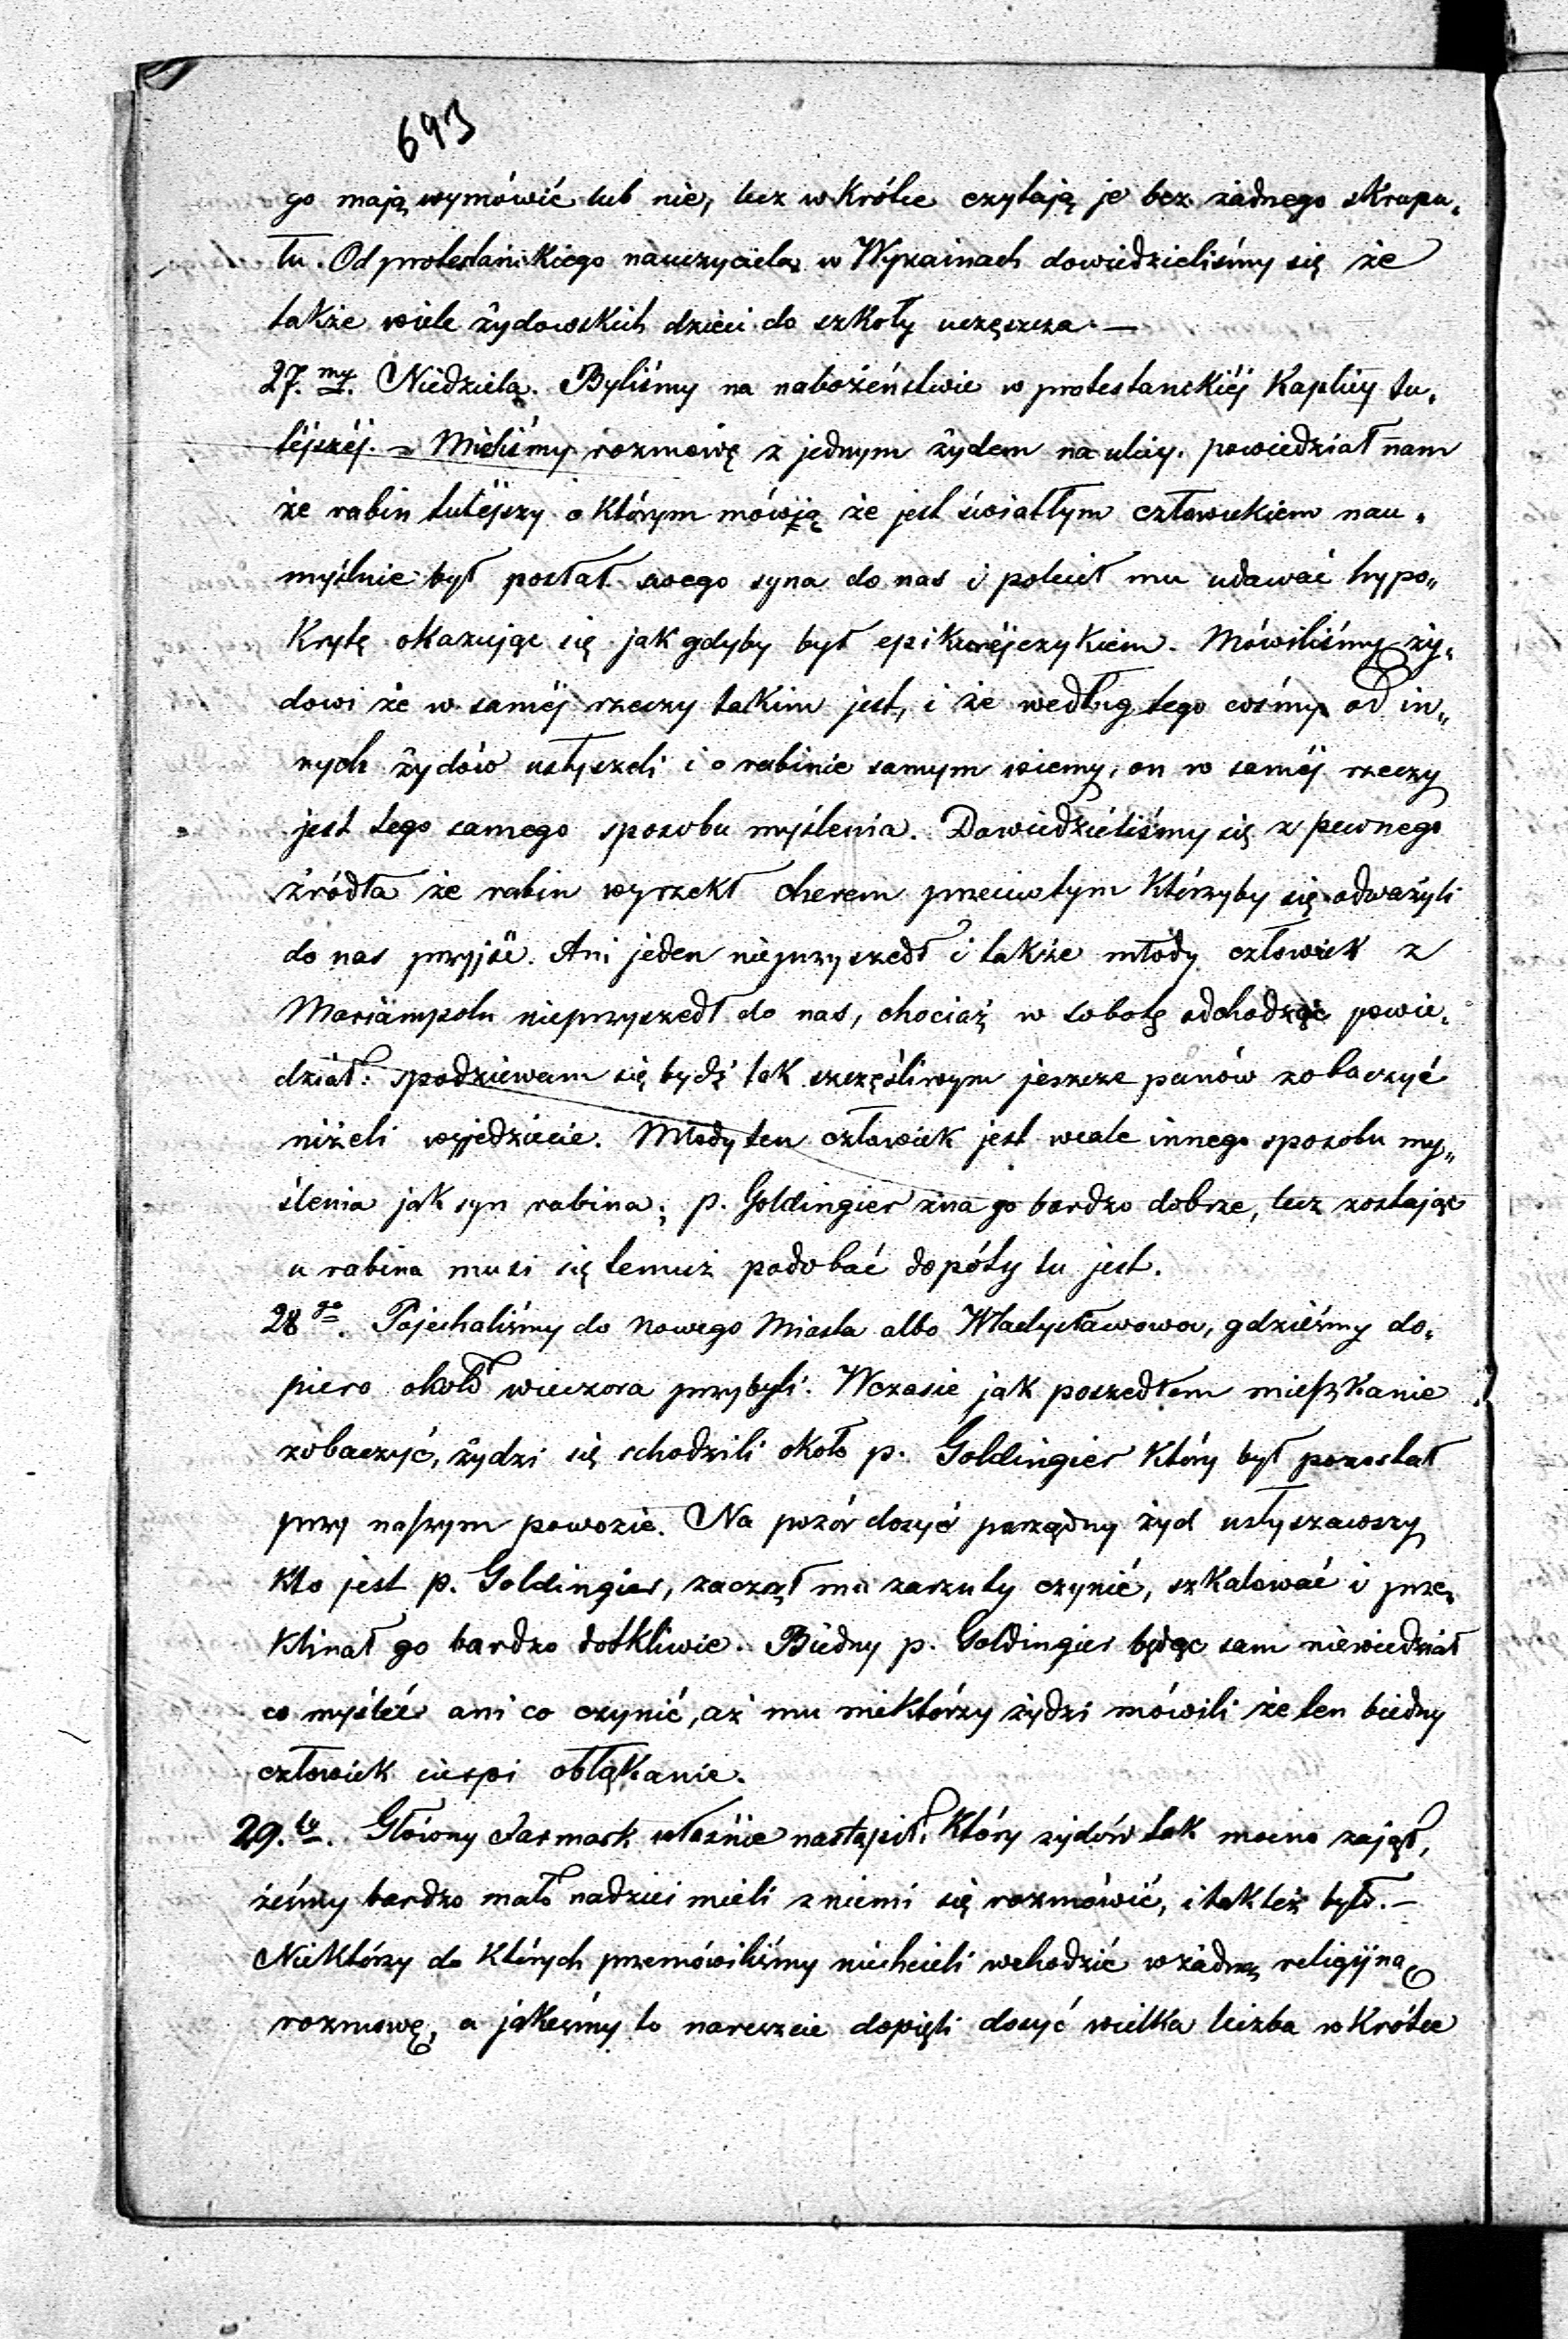 693
go mają wymówić lub nie, lecz wkrótce czytają je bez żadnego skrupu„
łu. Od protestanckiego nauczyciela w Wyżainach dowiedzieliśmy się że
także wiele żydowskich dzieci do szkoły uczęszcza. —
27.my. Niedziela. Byliśmy na nabożeństwie w protestanckiéj Kaplicy tu„
téjszéj. – Mieliśmy rozmowę z jednym żydem na ulicy. powiedział nam
że rabin tutéjszy o którym mówią że jest światłym człowiekiem nau„
myślnie był posłał swego syna do nas i polecił mu udawać hypo„
krytę okazując się jak gdyby był epikuréjczykiem. Mówiliśmy ży„
dowi że w saméj rzeczy takim jest, i że według tego cośmy od in„
nych żydów usłyszeli i o rabinie samym wiemy, on w saméj rzeczy
jest tego samego sposobu myślenia. Dowiedzieliśmy się z pewnego
źródła że rabin wyrzekł cherem przeciw tym którzyby się odważyli
do nas przyjść. Ani jeden nieprzyszedł i także młody człowiek z
Mariampolu nieprzyszedł do nas, chociaż w sobotę odchodząc powie„
dział: spodziewam się bydź tak szczęśliwym jeszcze panów zobaczyć
niżeli wyjedziecie. Młody ten człowiek jest wcale innego sposobu my„
ślenia jak syn rabina; p. Goldingier zna go bardzo dobrze, lecz zostając
u rabina musi się temuż podobać dopóty tu jest.
28go. Pojechaliśmy do Nowego Miasta albo Władysławowa, gdzieśmy do„
piero około wieczora przybyli. Wczasie jak poszedłem mieszkanie
zobaczyć, żydzi się schodzili około p. Goldingier który był pozostał
przy naszym powozie. Na pozór dosyć porządny żyd usłyszawszy
kto jest p. Goldingier, zaczął mu zarzuty czynić, szkalować i prze„
klinał go bardzo dotkliwie. Biedny p. Goldingier będąc sam niewiedział
co myśléć ani co czynić, aż mu niektórzy żydzi mówili że ten biedny
człowiek cierpi obłąkanie.
29.ty. Główny Jarmark właśnie nastąpił, który żydów tak mocno zajął,
żeśmy bardzo mało nadziei mieli z niemi się rozmówić, i tak też było. —
Niektórzy do których przemówiliśmy niechcieli wchodzić w żadną religijną
rozmowę, a jakeśmy to nareszcie dopięli dosyć wielka liczba wkrótce